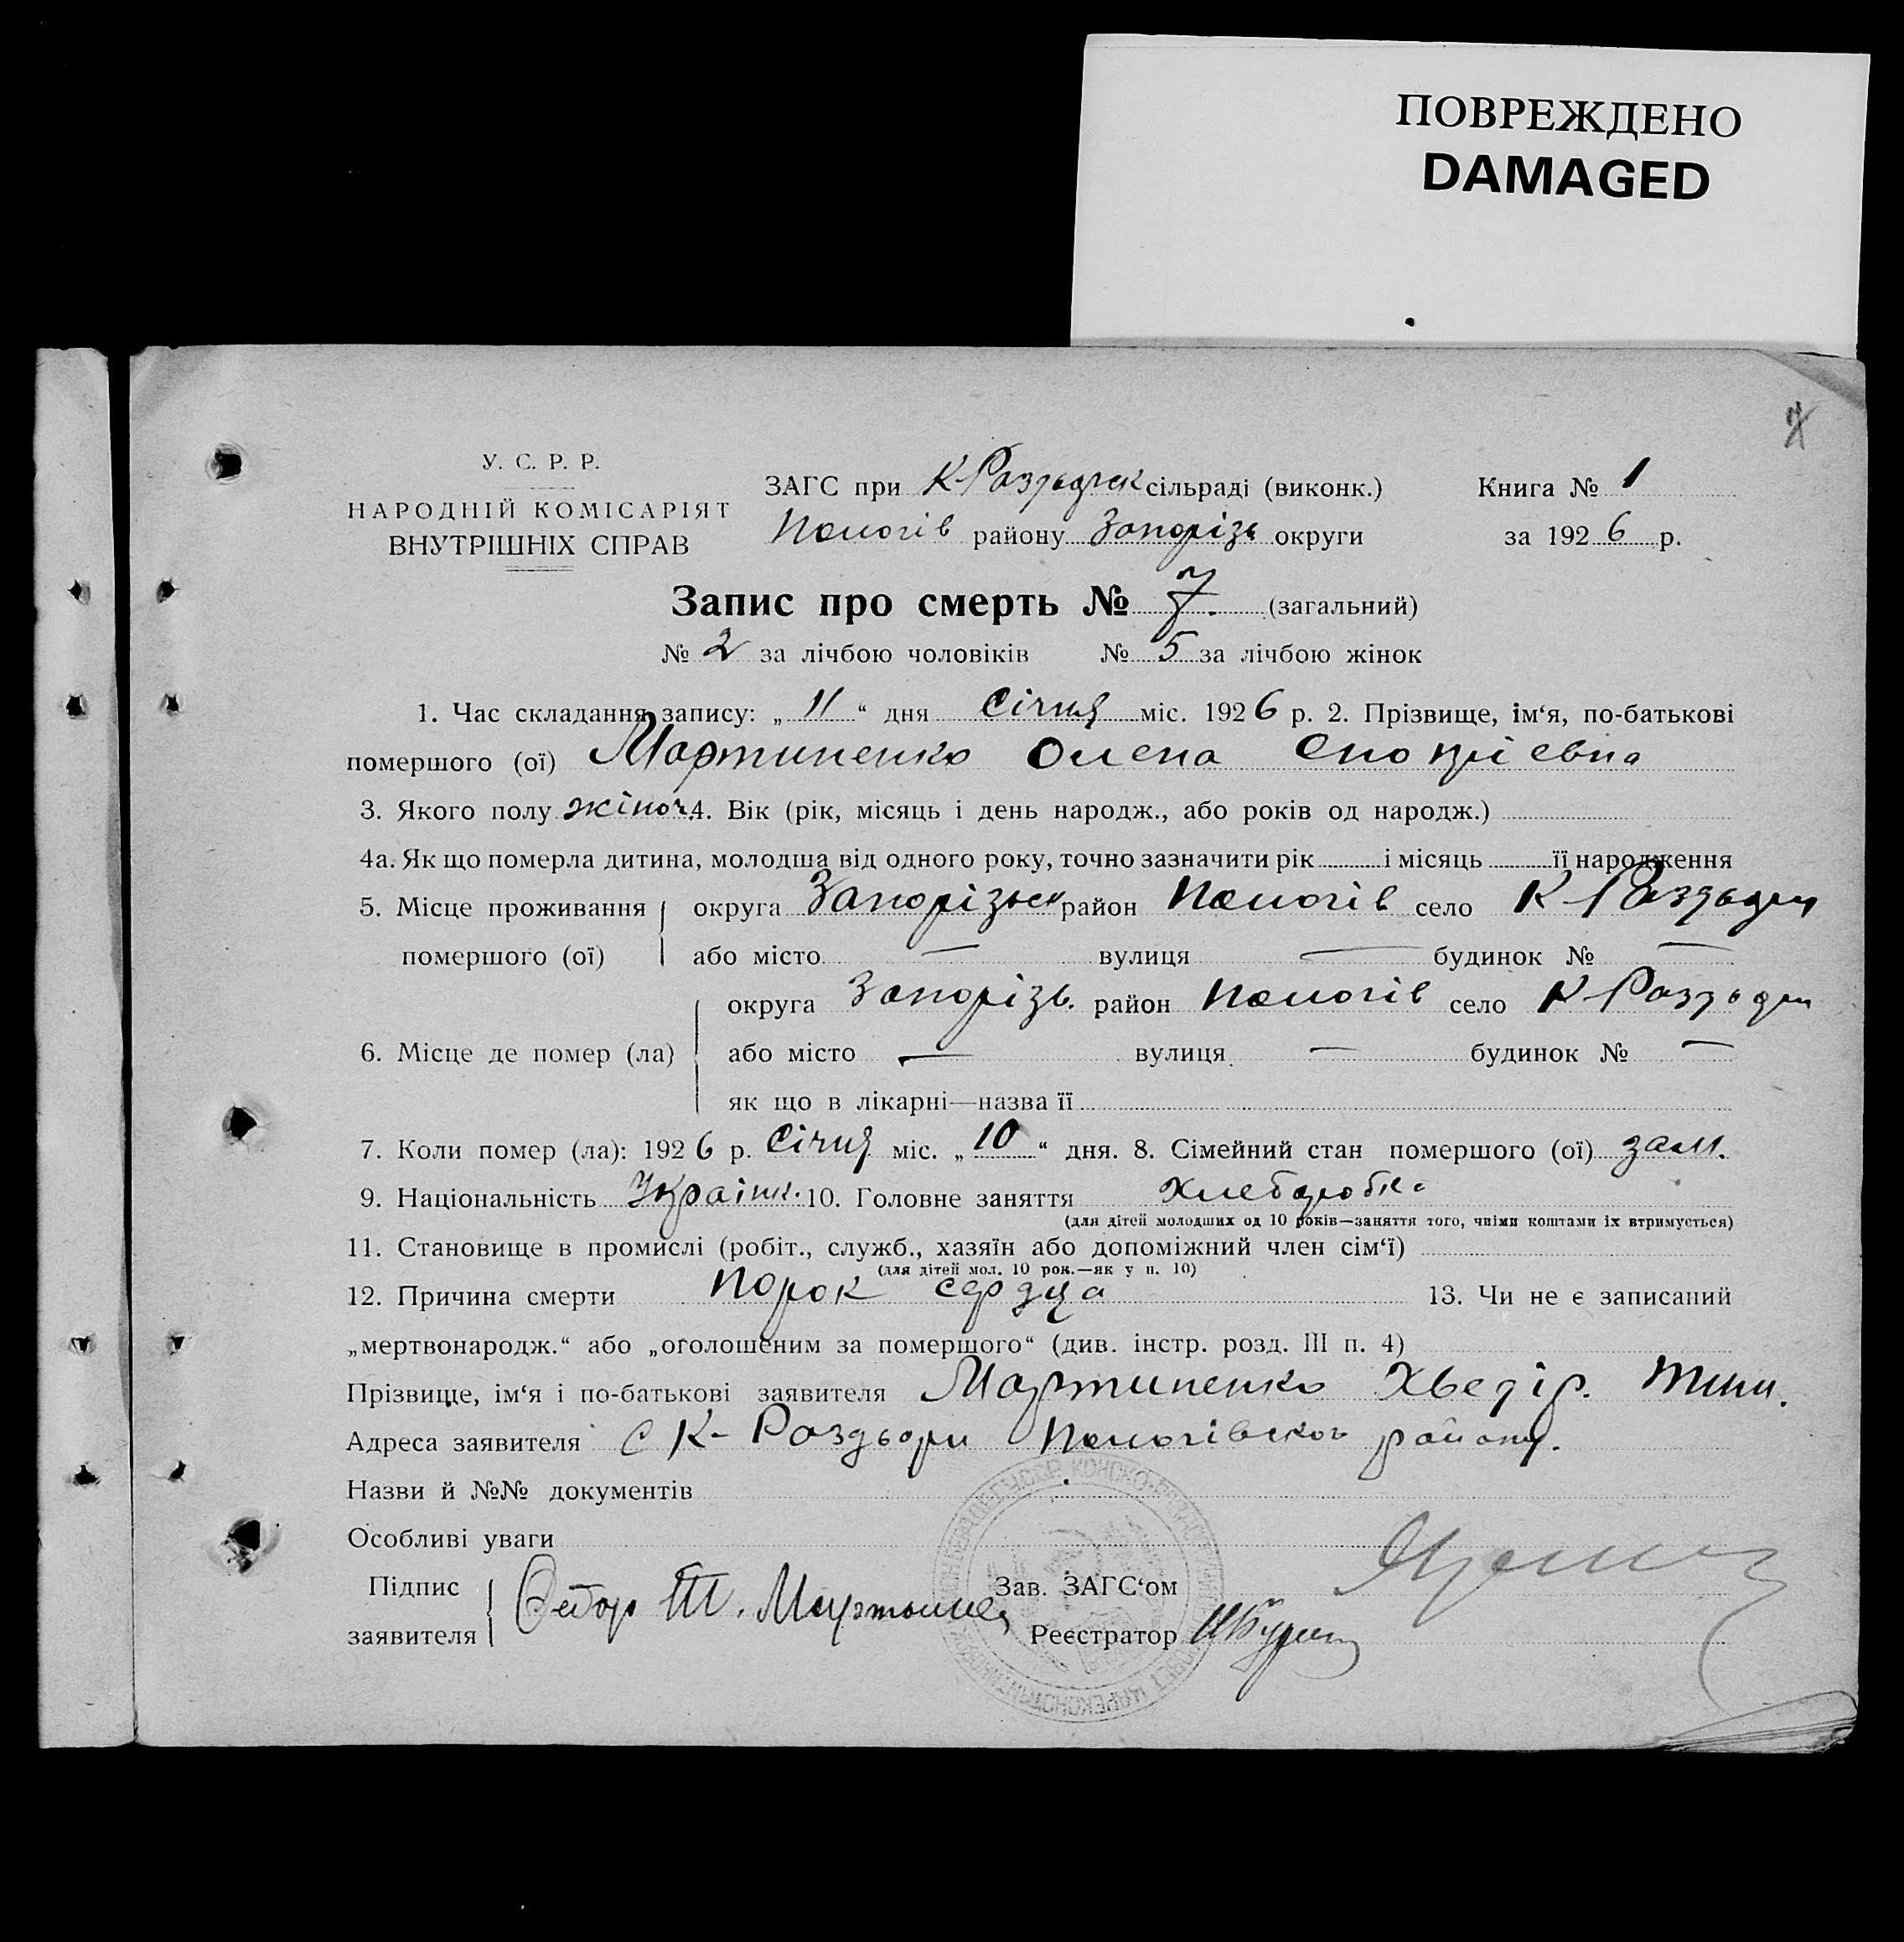 ПОВРЕЖДЕНО
DAMAGED
У. С. Р. Р.
НАРОДНІЙ КОМІСАРІЯТ
ВНУТРІШНІХ СПРАВ
ЗАГС при К-Роздорск сільраді (виконк.)
Пологів району Запорізь округи
Книга № 1
за 1926 р.
Запис про смерть № 7. (загальний)
№ 2 за лічбою чоловіків № 5 за лічбою жінок
1. Час складання запису: „11“ дня Січня міс. 1926 р. 2. Прізвище, ім‘я, по-батькові
помершого (ої) Мартиненко Олена
3. Якого полу жіноч. 4. Вік (рік, місяць і день народж., або років од народж.)
4а. Як що померла дитина, молодша від одного року, точно зазначити рік і місяць її народження
5. Місце проживання округа Запорізьк район Пологів село К-Роздори
помершого (ої) або місто — вулиця — будинок № —
округа Запорізь. район Пологів село К-Роздори
6. Місце де помер (ла) або місто — вулиця — будинок № —
як що в лікарні—назва її
7. Коли помер (ла): 1926 р. Січня міс. „10“ дня. 8. Сімейний стан помершого (ої) зам.
9. Національність Україн. 10. Головне заняття Хлеборобка
(для дітей молодших од 10 років—заняття того, чиїми коштами їх втримується)
11. Становище в промислі (робіт., служб., хазяїн або допоміжний член сім‘ї)
(для дітей мол. 10 рок.—як у п. 10)
12. Причина смерти порок сердца 13. Чи не є записаний
„мертвонародж.“ або „оголошеним за помершого“ (див. інстр. розд. III п. 4)
Прізвище, ім‘я і по-батькові заявителя Мартиненко Хведір. Тим.
Адреса заявителя с К-Роздори Пологівского району.
Назви й №№ документів
Особливі уваги
Підпис
заявителя Федор Т. Мартынен
Зав. ЗАГС‘ом
Реєстратор